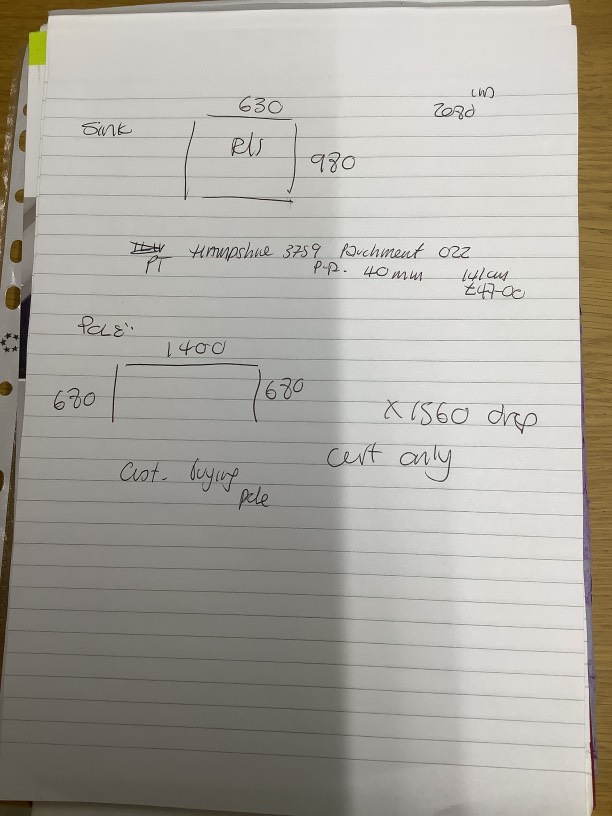 (W)
630
Sink
R/S
980
PT Hampshire 3759 Parchment 022
P.P. 40mm 141cm
£47-00
Pole:
1400
680
680
X 1560 drop
Curt only
Cust. buying
pole